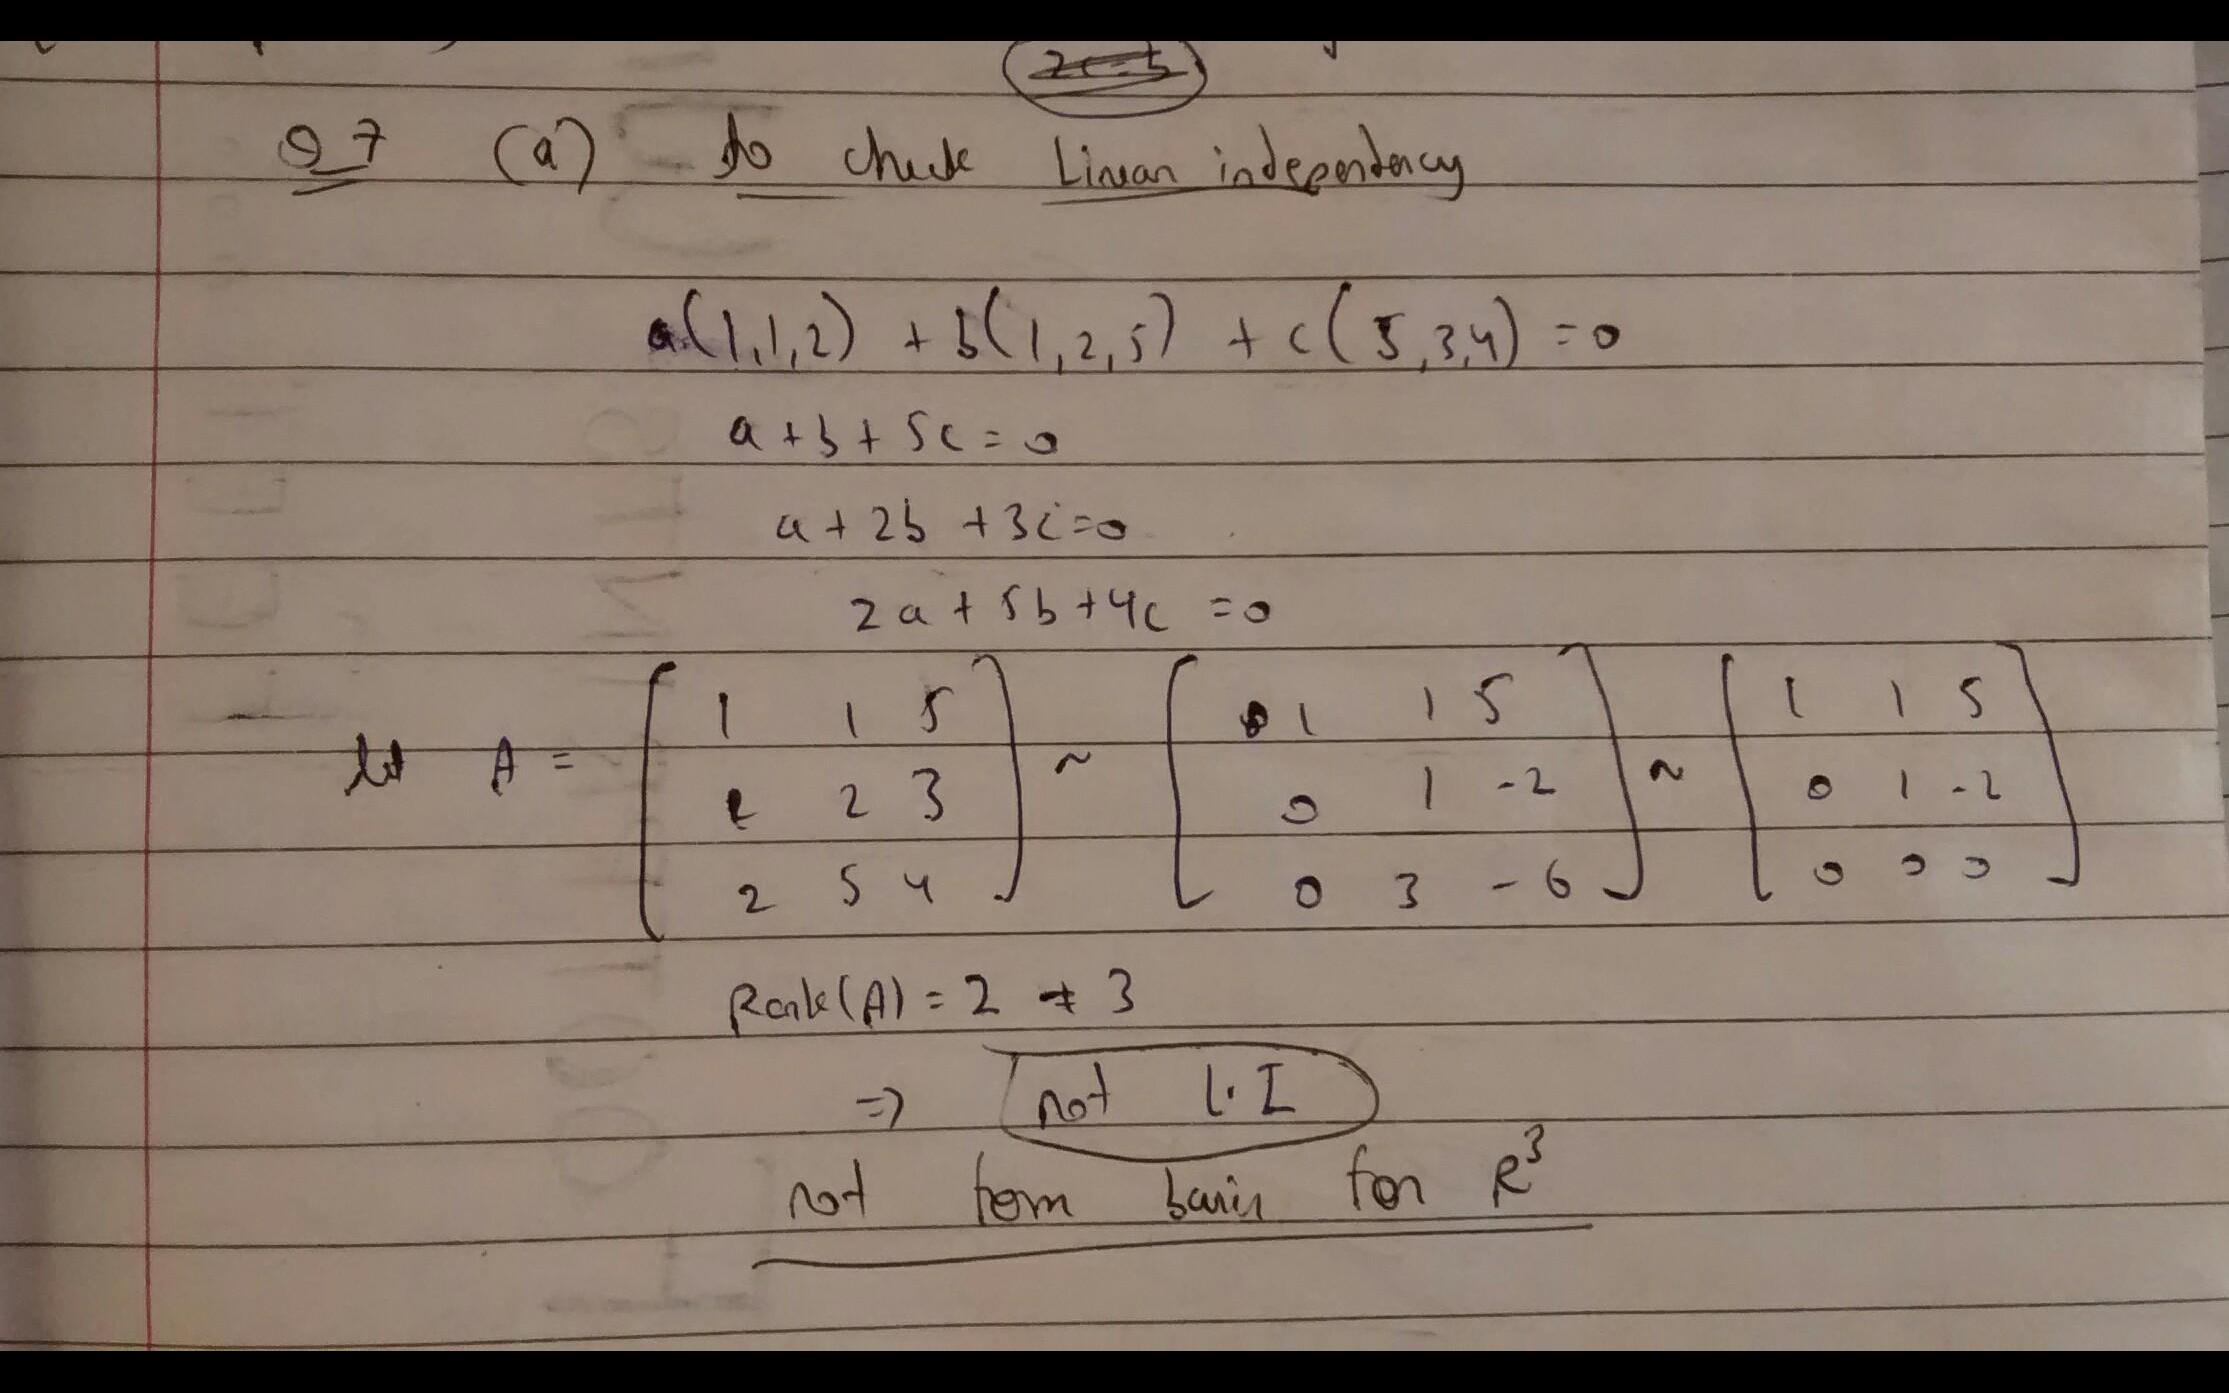 Q7 (a) to check Linear independency
a(1,1,2) + b(1,2,5) + c(5,3,4) = 0
a + b + 5c = 0
a + 2b + 3c = 0
2a + 5b + 4c = 0
let A = [1 1 5 ~ [1 1 5 ~ [1 1 5
1 2 3 0 1 -2 0 1 -2
2 5 4] 0 3 -6] 0 0 0]
Rank(A) = 2 ≠ 3
=> not L.I
not form basis for R³